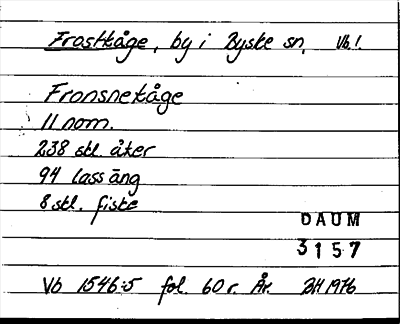 Frostkåge, by i Byske sn. Vb.l.
Fronsnekåge
11 nom.
238 stl. åker
94 lass äng
8 stl. fiske
DAUM
3157
Vb 1546:5 fol. 60 r. År. BH 1976